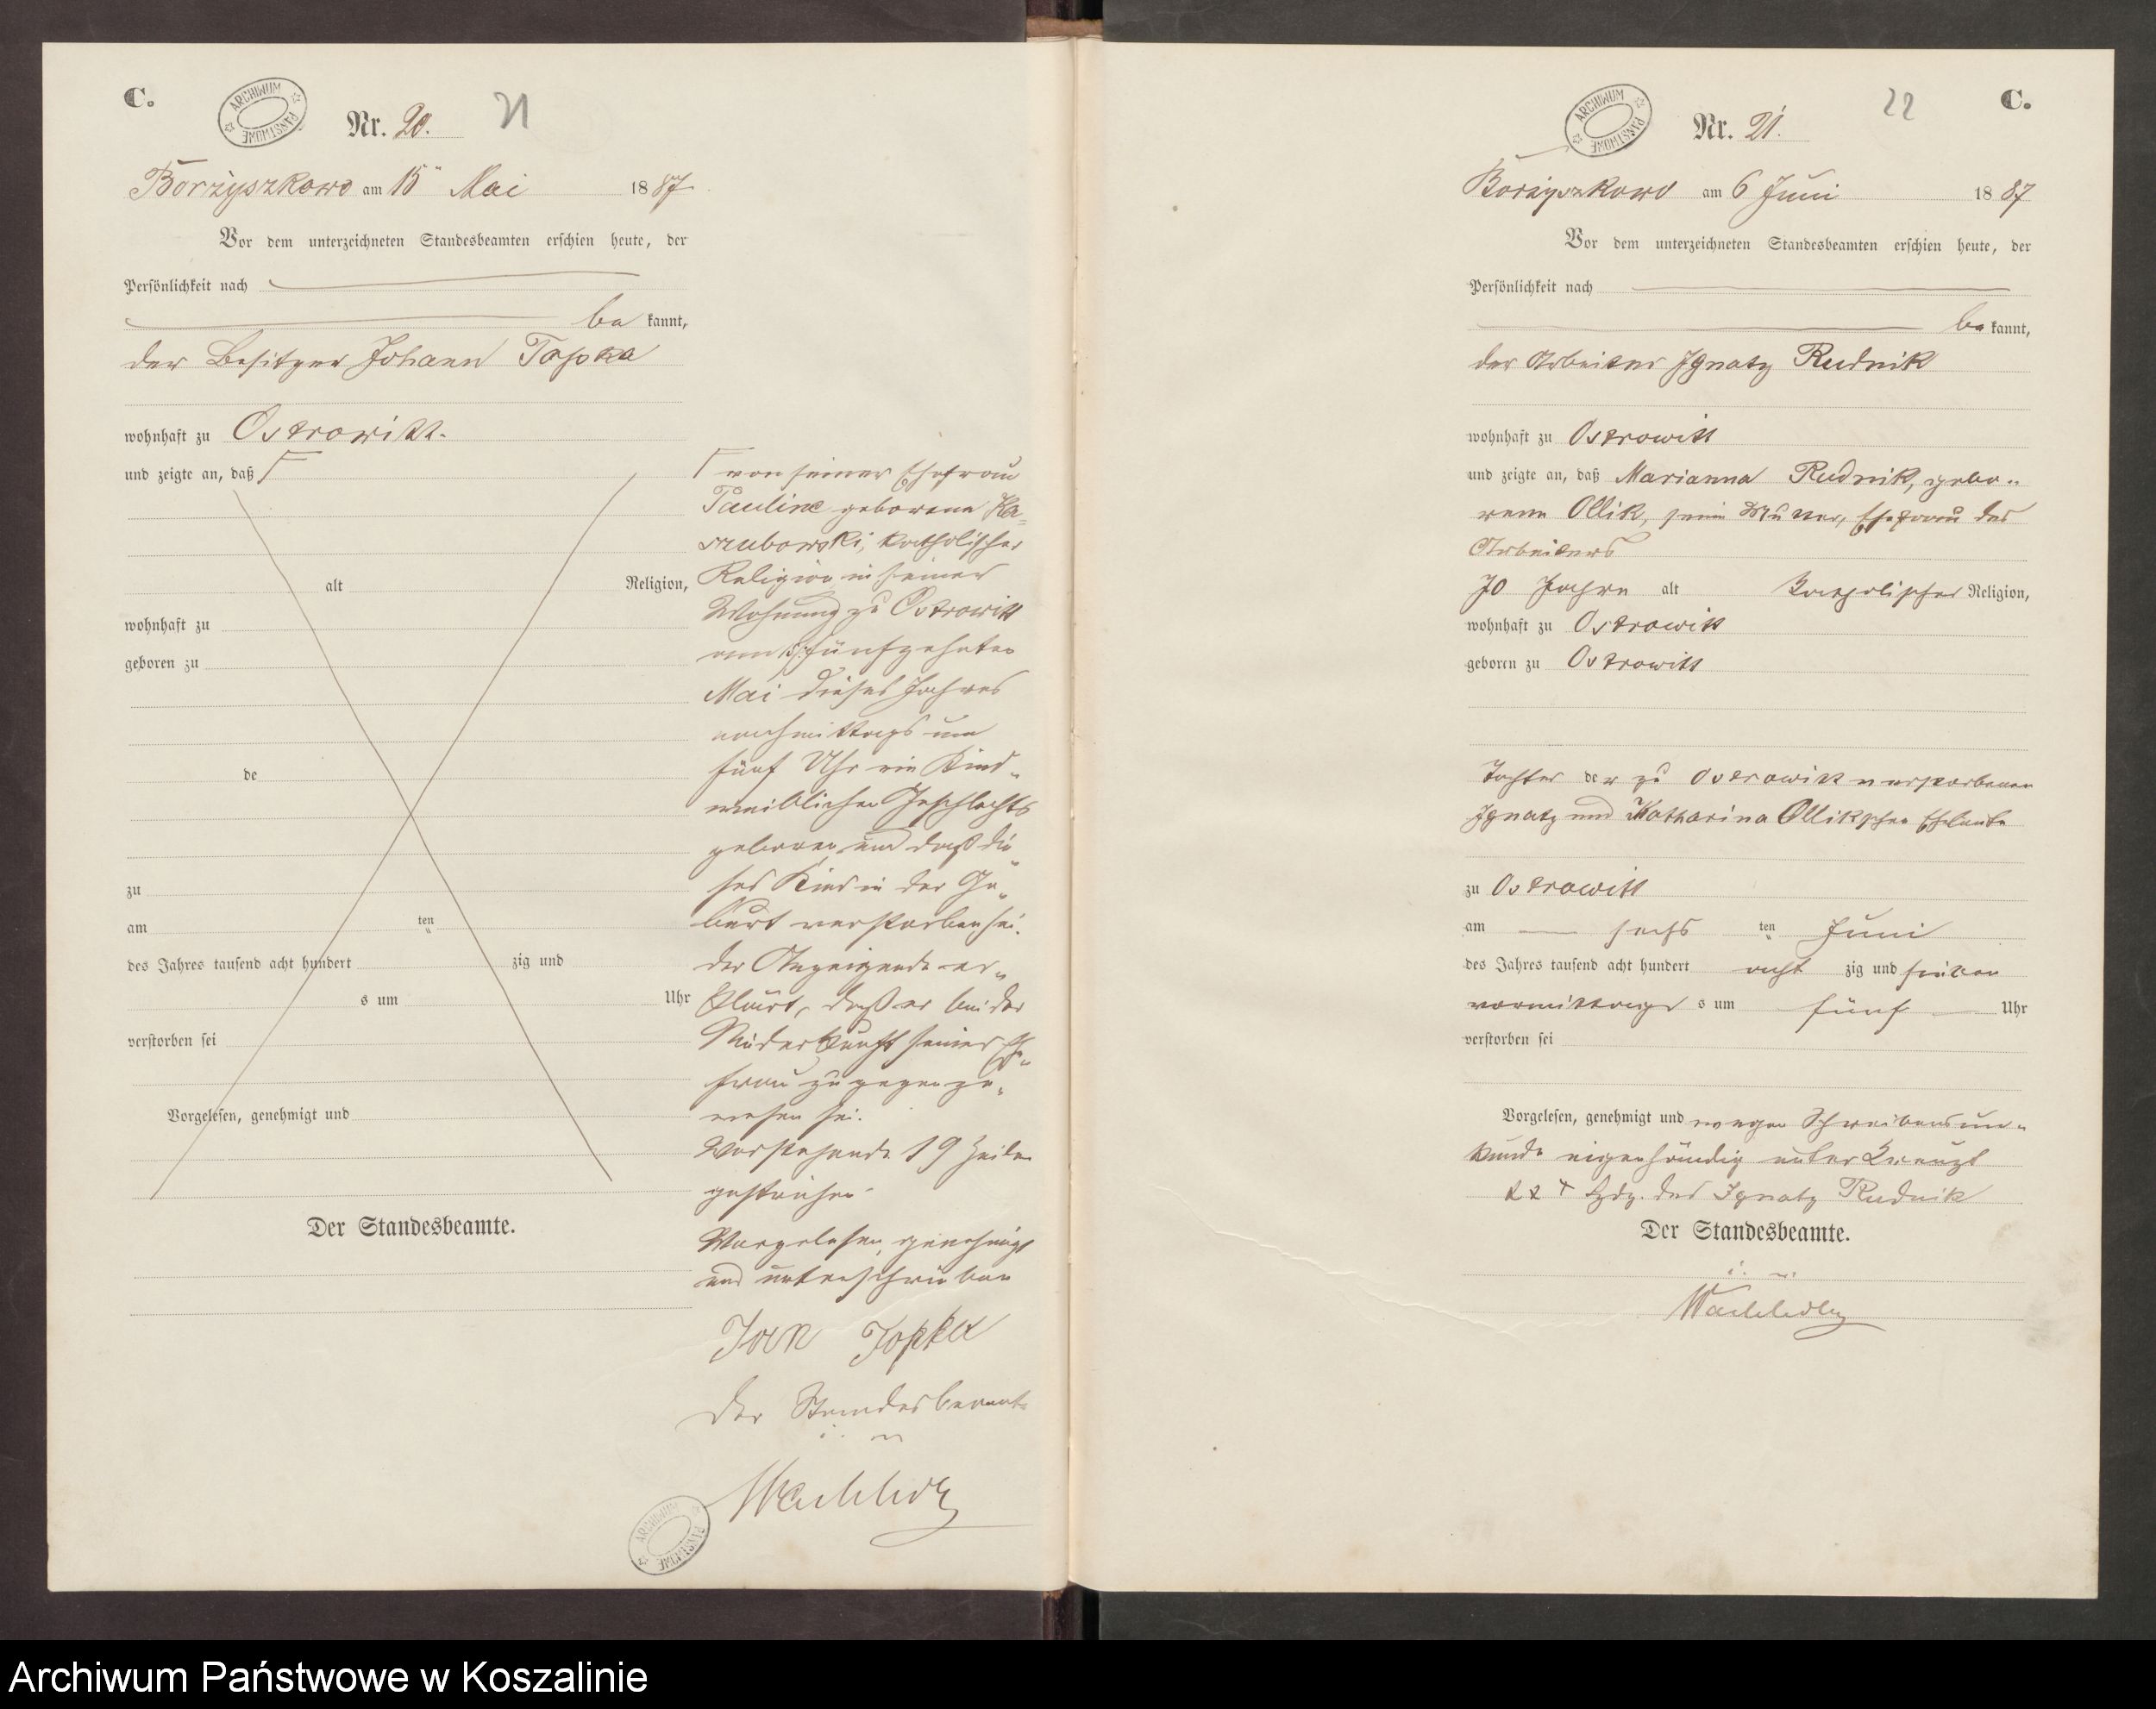 C.
ARCHIWUM PAŃSTWOWE
Nr. 20. 21
Borzyszkowo am 15ⁿ Mai 1887
Vor dem unterzeichneten Standesbeamten erschien heute, der
Persönlichkeit nach
be kannt,
der Besitzer Johann Topka
wohnhaft zu Ostrowitt.
und zeigte an, daß Γ
alt Religion,
wohnhaft zu
geboren zu
de
zu
am ten
des Jahres tausend acht hundert zig und
s um Uhr
verstorben sei
Vorgelesen, genehmigt und
Der Standesbeamte.
Γ von seiner Ehefrau
Pauline geborene Ka=
szubowski, katholischer
Religion in seiner
Wohnung zu Ostrowitt
am 15 fünfzehnten
Mai dieses Jahres
nachmittags um
fünf Uhr ein Kind
weiblichen Geschlechts
geboren und daß die
ses Kind in der Ge„
burt verstorben sei.
der Anzeigende er„
klärt, daß er bei der
Niederkunft seiner Ehe„
frau zugegen ge„
wesen sei.
Vorstehende 19 Zeilen
gestrichen.
Vorgelesen, genehmigt
und unterschrieben
Jan Topka
Der Standesbeamte
ARCHIWUM PAŃSTWOWE
C.
ARCHIWUM PAŃSTWOWE
Nr. 21. 22
Borzyszkowo am 6 Juni 1887
Vor dem unterzeichneten Standesbeamten erschien heute, der
Persönlichkeit nach
be kannt,
der Arbeiter Ignatz Rudnik
wohnhaft zu Ostrowitt
und zeigte an, daß Marianna Rudnik, gebo„
rene Ollik, seine Mutter, Ehefrau des
Arbeiters
70 Jahre alt katholischer Religion,
wohnhaft zu Ostrowitt
geboren zu Ostrowitt
Tochter der zu Ostrowitt verstorbenen
Ignatz und Katharina Ollikschen Eheleute
zu Ostrowitt
am sechs ten Juni
des Jahres tausend acht hundert acht zig und sieben
vormittags s um fünf Uhr
verstorben sei
Vorgelesen, genehmigt und wegen Schreibensun„
kunde eigenhändig unterkreuzt
+++ Hdz. des Ignatz Rudnik
Der Standesbeamte.
Archiwum Państwowe w Koszalinie